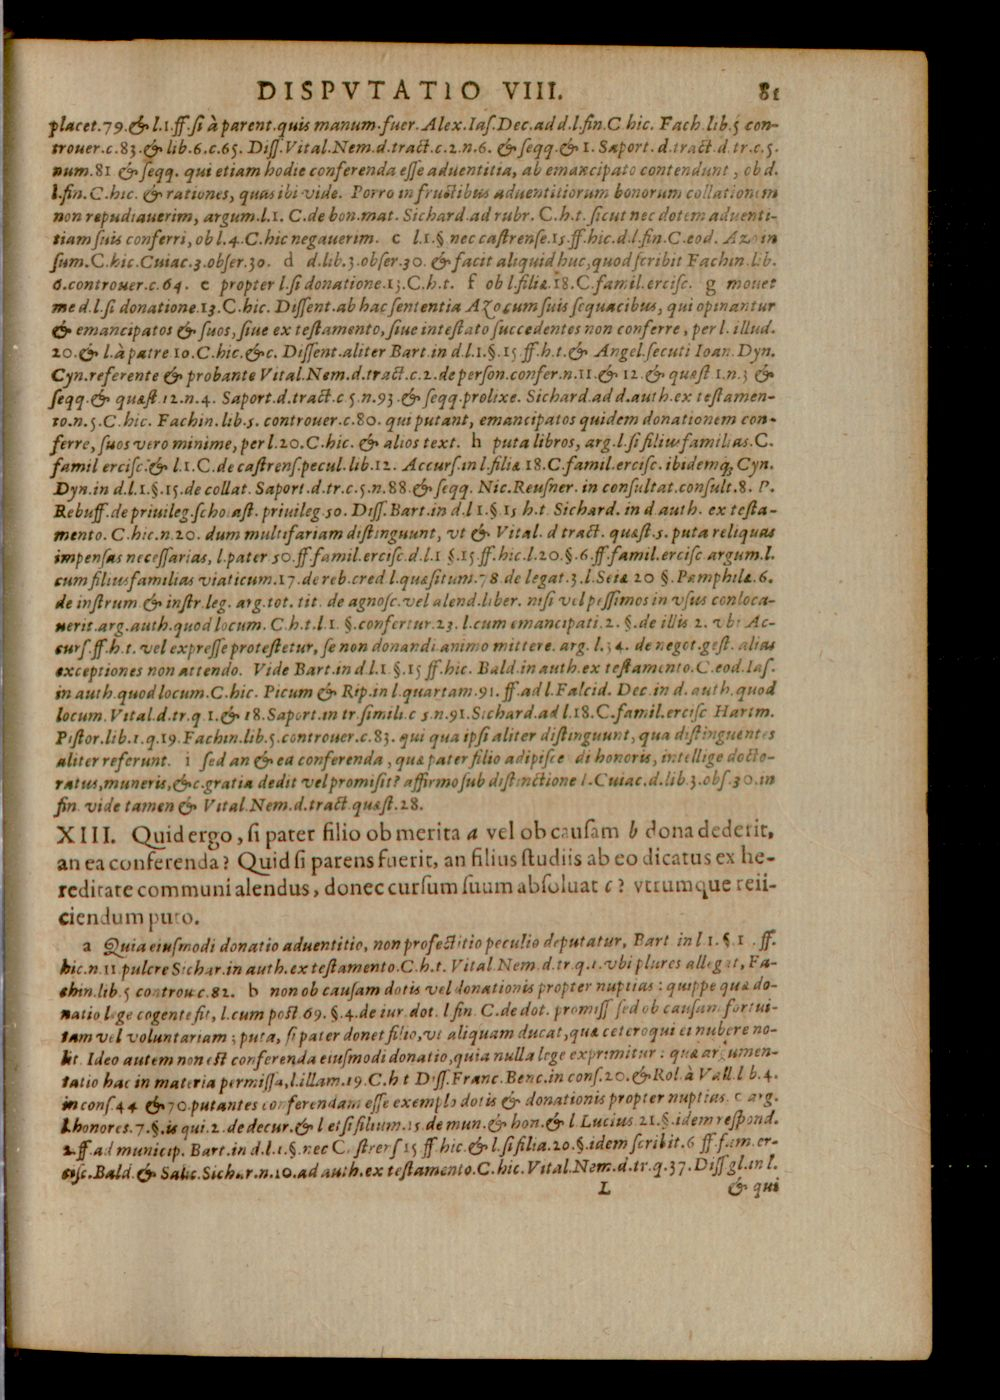 DISPVTATIO VIII. 81
placet.79.& l.1.ff.ſi à parent.quis manum.fuer. Alex.Iaſ.Dec.ad d.l.fin.C hic. Fach.lib.5 con-
trouer.c.83.& lib.6.c.65. Diſſ.Vital.Nem.d.tract.c.2.n.6. & ſeqq.& 1. Saport. d.tract.d.tr.c.5.
num.81 & ſeqq. qui etiam hodie conferenda eſſe aduentitia, ab emancipato contendunt, ob d.
l.fin.C.hic. & rationes, quas ibi vide. Porro in fructibus aduentitiorum bonorum collationem
non repudiauerim, argum.l.1. C.de bon.mat. Sichard.ad rubr. C.h.t. ſicut nec dotem aduenti-
tiam ſuis conferri, ob l.4.C.hic negauerim. c l.1.§ nec caſtrenſe.15.ff.hic.d.l.fin.C.eod. Azo in
ſum.C.hic.Cuiac.3.obſer.30. d d.lib.3.obſer.30. & facit aliquid huc, quod ſcribit Fachin.lib.
6.controuer.c.64. e propter l.ſi donatione.13.C.h.t. f ob l.filiæ.18.C.famil.erciſc. g mouet
me d.l.ſi donatione.13.C.hic. Diſſent.ab hac ſententia Azo cum ſuis ſequacibus, qui opinantur
& emancipatos & ſuos, ſiue ex teſtamento, ſiue inteſtato ſuccedentes non conferre, per l. illud.
20.& l.à patre 10.C.hic.&c. Diſſent.aliter Bart.in d.l.1.§.15 ff.h.t.& Angel.ſecuti Ioan. Dyn.
Cyn.referente & probante Vital.Nem.d.tract.c.2.de perſon.confer.n.11.& 12.& quæſt 1.n.3 &
ſeqq.& quæſt.12.n.4. Saport.d.tract.c.5.n.93.& ſeqq.prolixe. Sichard.ad d.auth.ex teſtamen-
to.n.5.C.hic. Fachin.lib.5. controuer.c.80. qui putant, emancipatos quidem donationem con-
ferre, ſuos vero minime, per l.20.C.hic.& alios text. h puta libros, arg.l.ſi filiusfamilias.C.
famil erciſc.& l.1.C.de caſtrenſ.pecul.lib.12. Accurſ.in l.filiæ 18.C.famil.erciſc. ibidemq́; Cyn.
Dyn.in d.l.1.§.15.de collat. Saport.d.tr.c.5.n.88.& ſeqq. Nic.Reuſner. in conſultat.conſult.8. P.
Rebuff.de priuileg.ſcholaſt. priuileg.50. Diſſ.Bart.in d.l 1.§.15 h.t. Sichard. in d auth. ex teſta-
mento. C.hic.n.20. dum multifariam diſtinguunt, vt & Vital. d tract. quæſt.5. puta reliquas
impenſas neceſſarias, l.pater 50.ff.famil.erciſc.d.l.1 §.15.ff.hic.l.20.§.6.ff.famil.erciſc argum.l.
cum filiusfamilias viaticum.17.de reb.cred l.quæſitum.78.de legat.3.l.Seiæ 20 §.Pamphilæ.6.
de inſtrum & inſtr.leg. arg.tot. tit. de agnoſc.vel alend.liber. niſi vel peſſimos in vſus conloca-
uerit.arg.auth.quod locum. C.h.t.l.1 §.confertur.23. l.cum emancipati.2. §.de illis 2. vbi Ac-
curſ.ff.h.t. vel expreſſe proteſtetur, ſe non donandi animo mittere. arg. l.34. de negot.geſt. alias
exceptiones non attendo. Vide Bart.in d.l.1 §.15 ff.hic. Bald.in auth.ex teſtamento.C.eod.Iaſ.
in auth.quod locum.C.hic. Picum & Rip.in l.quartam.91. ff.ad l.Falcid. Dec.in d. auth.quod
locum.Vital.d.tr.q 1.& 18.Saport.in tr.ſimili.c 5.n.91.Sichard.ad l.18.C.famil.erciſc Hartm.
Piſtor.lib.1.q.19.Fachin.lib.5.controuer.c.83. qui qua ipſi aliter diſtinguunt, qua diſtinguentes
aliter referunt. i ſed an & ea conferenda, quæ pater filio adipiſce di honoris, intellige docto-
ratus,muneris,&c.gratia dedit vel promiſit? affirmo ſub diſtinctione l.Cuiac.d.lib.3.obſ.30.in
fin. vide tamen & Vital.Nem.d.tract.quæſt.28.
XIII. Quid ergo, ſi pater filio ob merita a vel ob cauſam b dona dederit,
an ea conferenda? Quid ſi parens fuerit, an filius ſtudiis ab eo dicatus ex he-
reditate communi alendus, donec curſum ſuum abſoluat c? vtrumque reii-
ciendum puto.
a Quia eiuſmodi donatio aduentitio, non profectitio peculio deputatur, Bart in l 1.§.1 . ff.
hic.n.11 pulcre Sichar.in auth.ex teſtamento.C.h.t. Vital.Nem.d.tr.q.1.vbi plures allegat, Fa-
chin.lib.5 controu.c.82. b non ob cauſam dotis vel donationis propter nuptias: quippe quæ do-
natio lege cogente fit, l.cum poſt 69.§.4.de iur.dot.l.fin. C.de dot. promiſſ ſed ob cauſam fortui-
tam vel voluntariam; puta, ſi pater donet filio, vt aliquam ducat, quæ ceteroqui ei nubere no-
lit. Ideo autem non eſt conferenda eiuſmodi donatio, quia nulla lege exprimitur: quæ argumen-
tatio hac in materia permiſſa, l.illam.19.C.h t Diſſ.Franc.Benc.in conſ.20.& Rol.à Vall l b.4.
in conſ.44 & 70.putantes conferendam eſſe exemplo dotis & donationis propter nuptias. c arg.
l.honores.7.§.is qui.2.de decur.& l et ſi filium.15.de mun.& hon.& l Lucius.21.§.idem reſpond.
2.ff.ad municip. Bart.in d.l.1.§.nec C ſtrenſ 15 ff hic.& l.ſi filia.20.§.idem ſcribit.6 ff.fam.er-
ciſc.Bald.& Salic.Sichar.n.10.ad auth.ex teſtamento.C.hic.Vital.Nem.d.tr.q.37.Diſſ gl.in l.
L & qui